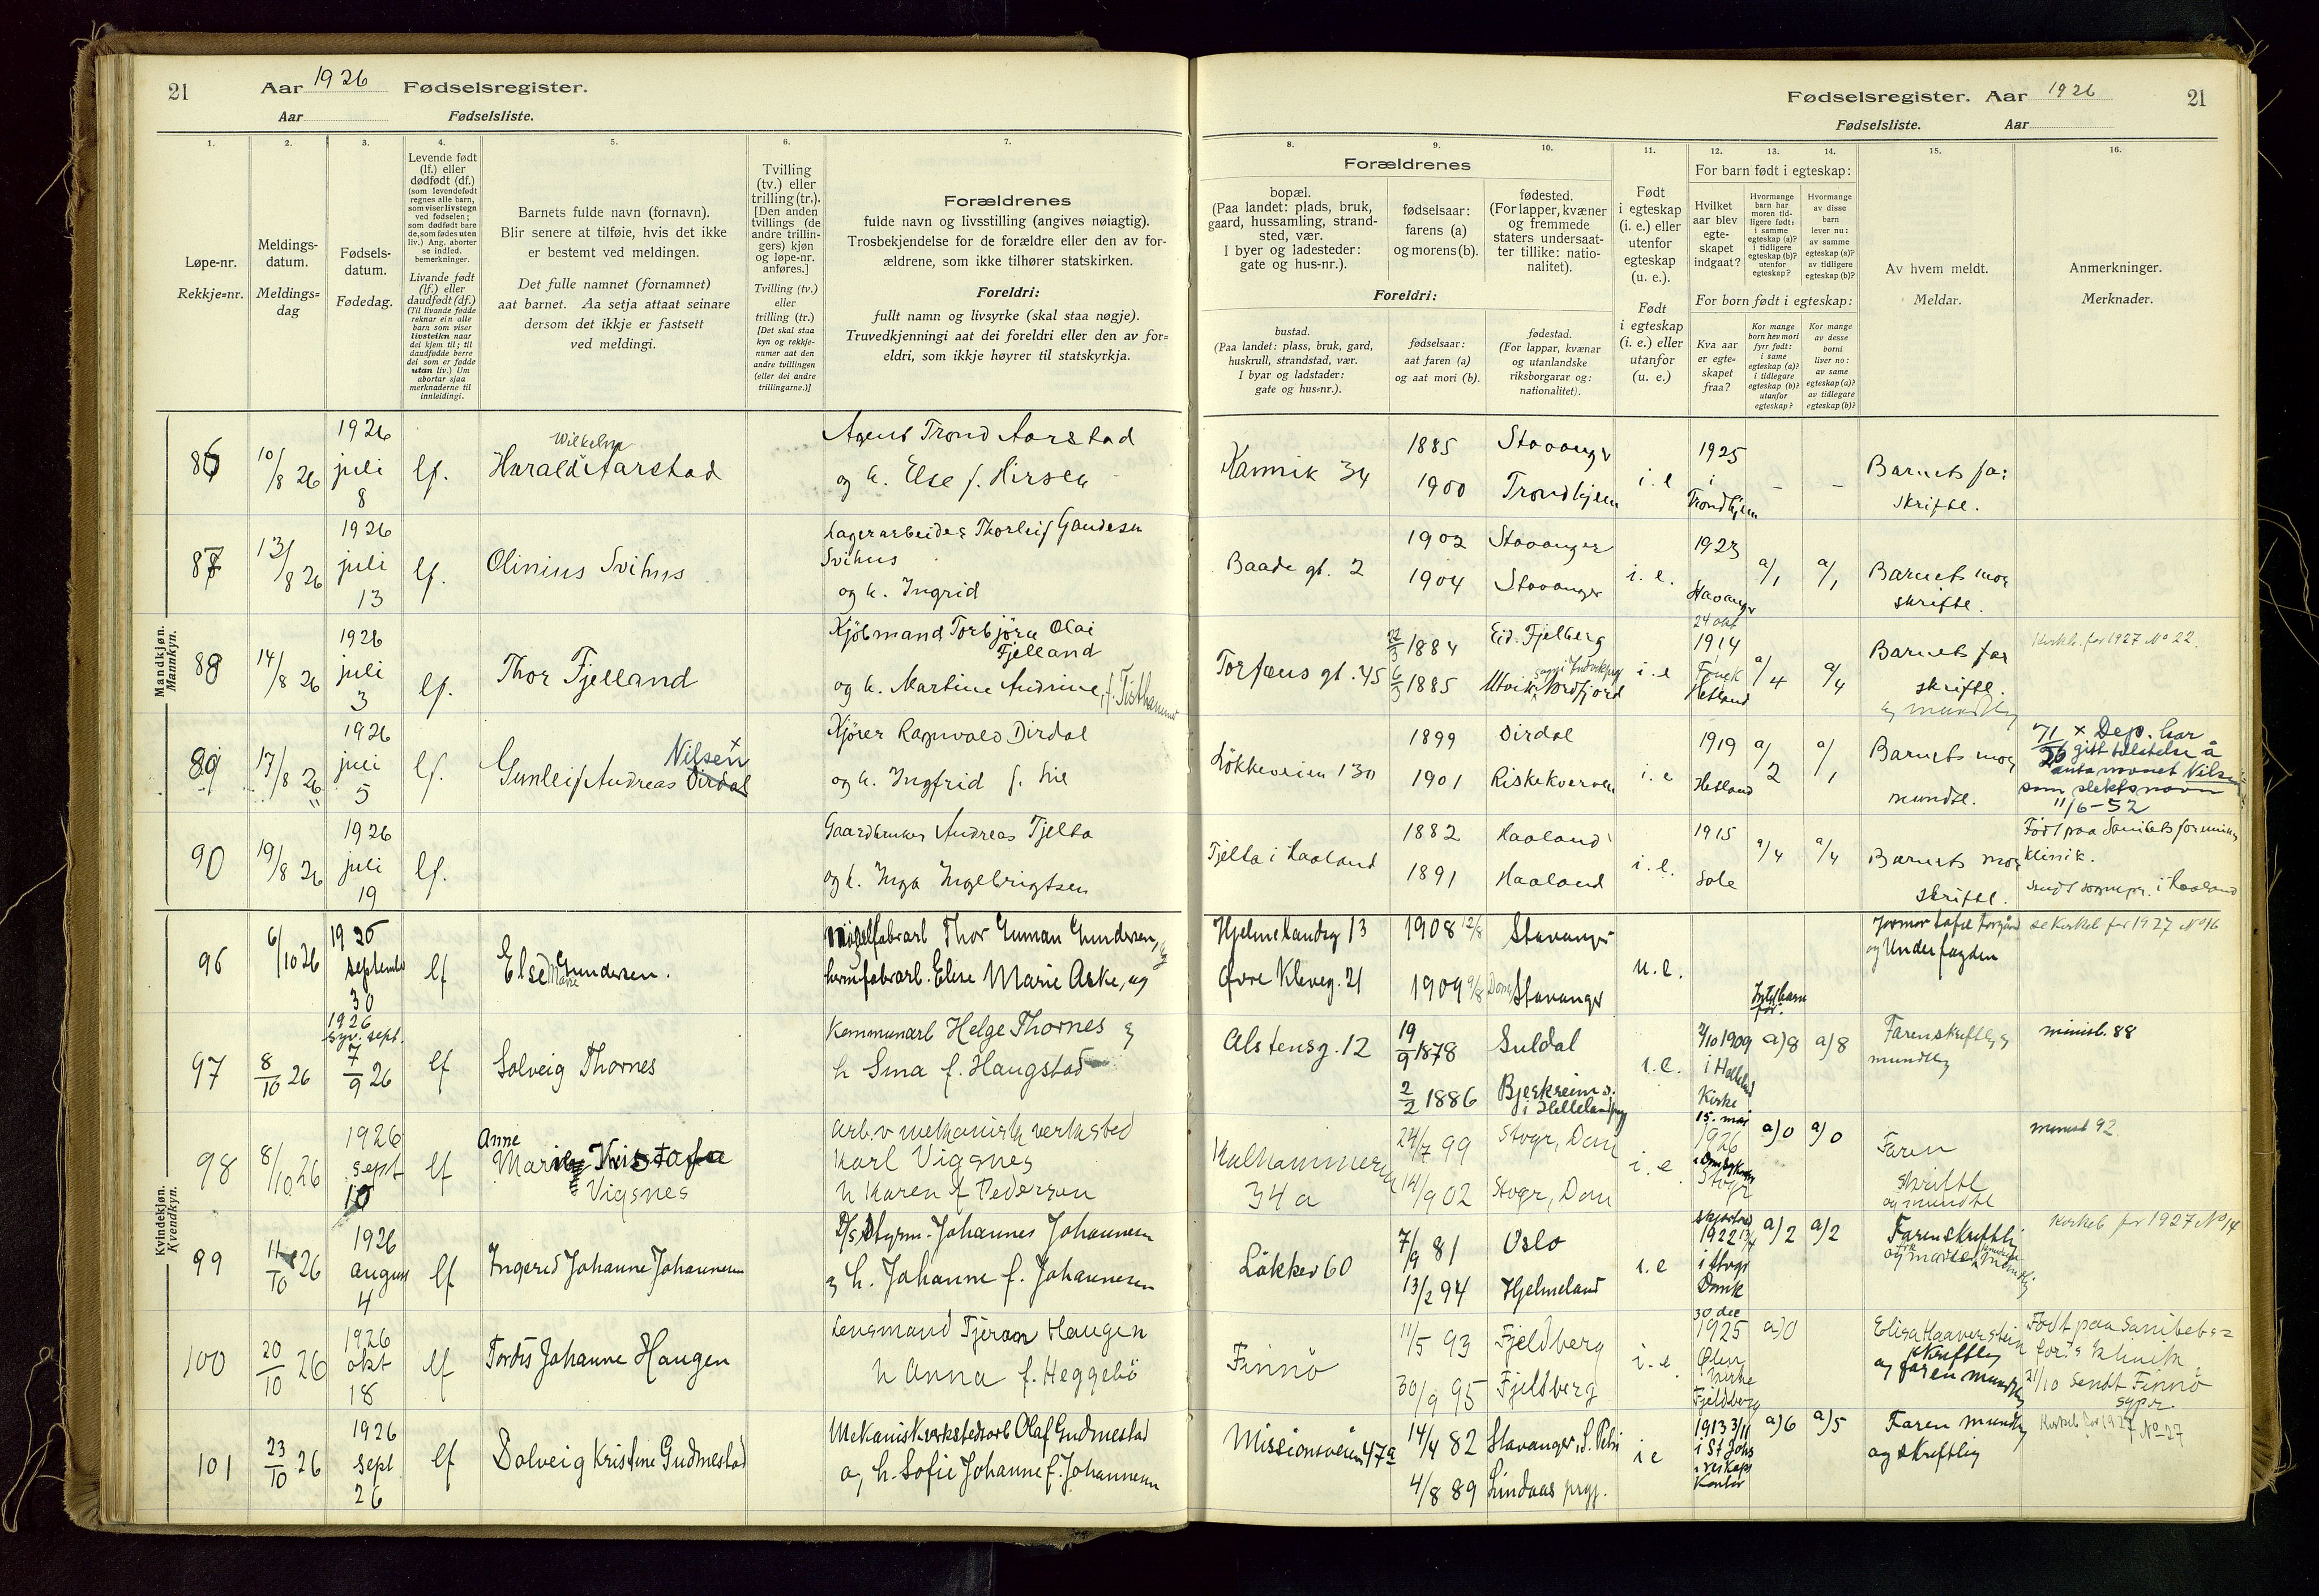 21
Aar 1926 Fødselsregister.
Aar Fødselsliste.
1.
2.
3.
4.
5.
6.
7.
Løpe-nr.
Rekkje=nr.
Meldings-
datum.
Meldings=
dag
Fødsels-
datum.
Fødedag.
Levende født
(lf.) eller
dødfødt (df.)
(som levendefødt
regnes alle barn,
som viser livstegn
ved fødselen;
som dødfødt bare
de, som fødes uten
liv.) Ang. aborter
se indled.
bemerkninger.
Livande født
(lf.) eller
daudfødt (df.)
(Til livande fødde
reknar ein alle
barn som viser
livsteikn naar
dei kjem til; til
daudfødde berre
dei som er fødde
utan liv.) Um
abortar sjaa
merknaderne til
innleidingi.
Barnets fulde navn (fornavn).
Blir senere at tilføie, hvis det ikke
er bestemt ved meldingen.
Det fulle namnet (fornamnet)
aat barnet. Aa setja attaat seinare
dersom det ikkje er fastsett
ved meldingi.
Tvilling
(tv.) eller
trilling (tr.).
[Den anden
tvillings (de
andre trillin-
gers) kjøn
og løpe-nr.
anføres.]
Tvilling (tv.)
eller
trilling (tr.)
[Det skal staa
kyn og rekkje-
numer aat den
andre tvillingen
(eller dei andre
trillingarne.)]
Forældrenes
fulde navn og livsstilling (angives nøiagtig).
Trosbekjendelse for de forældre eller den av for-
ældrene, som ikke tilhører statskirken.
Foreldri:
fullt namn og livsyrke (skal staa nøgje).
Truvedkjenningi aat dei foreldri eller den av for=
eldri, som ikkje høyrer til statskyrkja.
Fødselsregister. Aar 1926
21
Fødselsliste. Aar
8.
9.
10.
11.
12.
13.
14.
15.
16.
Forældrenes
bopæl.
(Paa landet: plads, bruk,
gaard, hussamling, strand-
sted, vær.
I byer og ladesteder:
gate og hus-nr.).
fødselsaar:
farens (a)
og morens (b).
fødested.
(For lapper, kvæner
og fremmede
staters undersaat-
ter tillike: natio-
nalitet).
Foreldri:
bustad.
(Paa landet: plass, bruk, gard,
huskrull, strandstad, vær.
I byar og ladstader:
gate og hus=nr.).
fødselsaar:
aat faren (a)
og aat mori (b).
fødestad.
(For lappar, kvænar
og utanlandske
riksborgarar og:
nationalitet).
Født
i egteskap
(i. e.) eller
utenfor
egteskap
(u. e.).
Født
i egteskap
(i. e.) eller
utanfor
(u. e.)
For barn født i egteskap:
Hvilket
aar blev
egte-
skapet
indgaat?
Hvormange
barn har
moren tid-
ligere født:
i samme
egteskap (a)?
i tidligere
egteskap (b)?
utenfor
egteskap?
Hvormange
av disse
barn
lever nu:
av samme
egteskap (a)?
av tidligere
egteskap (b)?
For born født i egteskap:
Kva aar
er egte-
skapet
fraa?
Kor mange
born hev mori
fyrr født:
i same
egteskap (a)?
i tidlegare
egteskap (b)?
utanfor
egteskap?
Kor mange
av desse
borni
liver no:
av same
egteskap (a)?
av tidlegare
egteskap (b)?
Av hvem meldt.
Meldar.
Anmerkninger.
Merknader.
Mandkjøn.
Mannkyn.
86 10/8 26 1926 juli 8 lf. Harald Wilhelm Aarstad
Agent Trond Aarstad
og h. Else f. Hirsch
Kannik 34 1885 Stavanger
1900 Trondhjem i. e 1925 i Trondhjem - -
Barnets far
skriftl.
87 13/8 26 1926 juli 13 lf. Olinius Svihus
Lagerarbeider Thorleif Gaudesen
Svihus
og h. Ingrid
Baade gt. 2 1902 Stavanger
1904 Stavanger i. e. 1923 Stavanger a/1 a/1
Barnets mor
skriftl.
88 14/8 26 1926 juli 3 lf. Thor Fjelland
Kjøbmand Torbjørn Olai
Fjelland
og h. Martine Andrine, f. Tisthammer
Torfæus gt. 45 22/3 1884 Eid. Fjelberg
6/3 1885 Utvik Nordfjord i. e 24 okt 1914 Hetland a/4 a/4
Barnets far
skriftl.
og mundtlig
Kirkeb. for 1927 No 22.
89 17/8 26 1926 juli 5 lf. Gunleif Andreas Dirdal Nilsen x
Kjører Ragnvald Dirdal
og h. Ingfrid f.
Løkkeveien 130 1899 Dirdal
1901 Riskekverven i. e 1919 Hetland a/2 a/1
Barnets mor
mundtl.
x Dep. har
gitt tillatelse å
anta navnet Nilsen
som slektsnavn
11/6-52
90 19/8 26 1926 juli 19 lf.
Gaardbruker Andreas Tjelta
og h. Inga Ingebrigtsen
Tjelta i Haaland 1882 Haaland
1891 Haaland i. e. 1915 Sole a/4 a/4
Barnets mor
skriftl.
Født paa Sanitetsforenings
klinik.
Sendt sognepr. i Haaland
Kvindekjøn.
Kvendkyn.
96 6/10 26 1926 september 30 lf Else Marie Gundersen.
Thor Guman Gundersen, og
Else Marie Aske, og
Hjelmelandsg 13 1908 12/8 Stavanger
Øvre Kleveg. 21 1909 9/8 Stavanger u. e.
Jormor
se kirkeb for 1927 No 16
97 8/10 26 1926 syv. sept. 7/9 26 lf Solveig Thornes
Kommunearb Helge Thornes &
h Sina f. Haugstad
Alstensg. 12 19/9 1878 Suldal
2/2 1886 Bjerkreim s.
i Hellelandpgj i. e. 2/10 1909 i Helleland Kirke a)8 a)8
Faren skriftlig &
mundtlig
minist. 88
98 8/10 26 1926 sept 10 lf Anne Marie Kristofa
Vigsnes
arb. v mekanisk verksted
Karl Vigsnes
h Karen f Pedersen
Kalhammeren
34 a 24/7 99 Stvgr, Dom
14/9 02 Stvgr, Dom i. e 15. mai 1926 i Domkirken Stvgr a)0 a)0
Faren
skriftl
og mundtl
minist 92
99 11/10 26 1926 august 4 lf Ingerid Johanne Johannesen
D/s Styrm. Johannes Johannesen
& h. Johanne f. Johannesen
Løkkev 60 7/9 81 Oslo
13/2 94 Hjelmeland i. e 1922 i Stvgr Domk a)2 a)2
Faren skriftlig
Kirkeb for 1927 No 14
100 20/10 26 1926 okt 18 lf Tordis Johanne Haugen
Lensmand Tjeran Haugen
h Anna f. Heggebø
Finnø 11/5 93 Fjeldberg
30/9 95 Fjeldberg i. e 30 dec 1925 Ølen kirke Fjeldberg a)0
Elisa Haaverstein
skriftlig
og faren mundtlig
Født paa Sanitets=
for.s klinik
21/10 Sendt Finnø
sgpr
101 23/10 26 1926 sept 26 lf Solveig Kristine Gudmestad
Mekanisk verkstedsarb Olaf Gudmestad
og h. Sofie Johanne f. Johannesen
Missionsveien 47a 14/4 82 Stavanger, S. Petri
4/8 89 Lindaas prgj. i e 1913 3/11 i St Johs a)6 a)5
Faren mundtlig
og skriftlig
Kirkeb for 1927 No 27